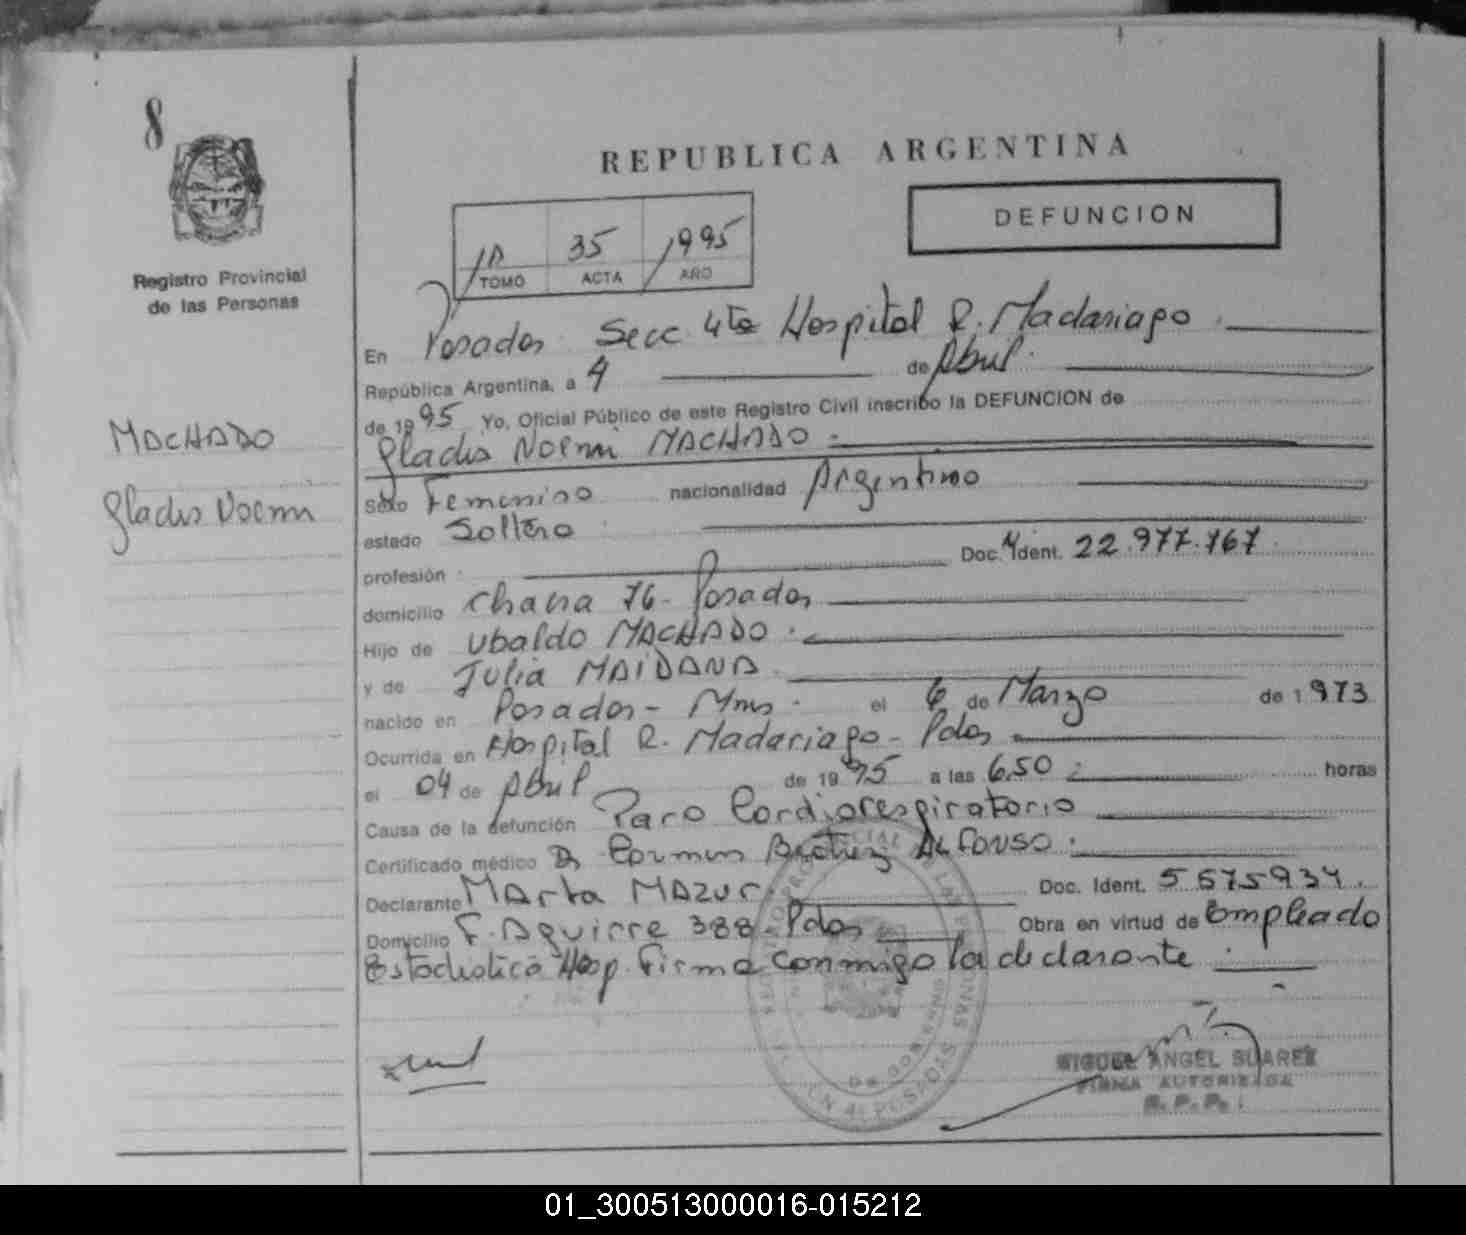 8
REPUBLICA ARGENTINA
DEFUNCION
35 1995
TOMO ACTA AÑO
Registro Provincial
de las Personas
En Posadas Secc 4ta Hospital R. Madariaga
República Argentina, a 4 de Abril
de 1995 Yo, Oficial Público de este Registro Civil inscribo la DEFUNCION de
Gladis Noemi MACHADO
MACHADO
Gladis Noemi
Sexo Femenino nacionalidad Argentino
estado Soltero
profesión Doc. Ident. 22.977.767
domicilio Chana 76 - Posadas
Hijo de Ubaldo MACHADO
y de Julia MAIDANA
nacido en Posadas - Mnes el 6 de Marzo de 1973
Ocurrida en Hospital R. Madariaga - Pdas
el 04 de Abril de 1995 a las 6,50 horas
Causa de la defunción Paro Cardiorespiratorio
Certificado médico Dr Carmen Beatriz ALFONSO
Declarante MArta MAZUR Doc. Ident. 5.575934
Domicilio F. Aguirre 388 - Pdas Obra en virtud de Empleado
Estadistica Hosp. Firma conmigo la declarante
MIGUEL ANGEL SUAREZ
FIRMA AUTORIZADA
R. P. P.
01_300513000016-015212